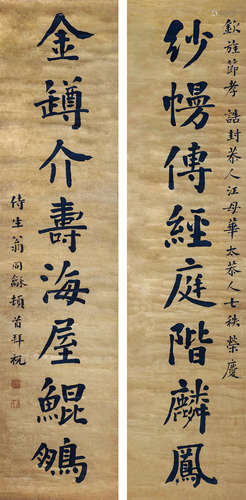 欽旌節孝誥封恭人江母華太恭人七秩榮慶
紗幔傳經庭階麟鳳
金罇介壽海屋鯤鵬
侍生翁同龢頓首拜祝